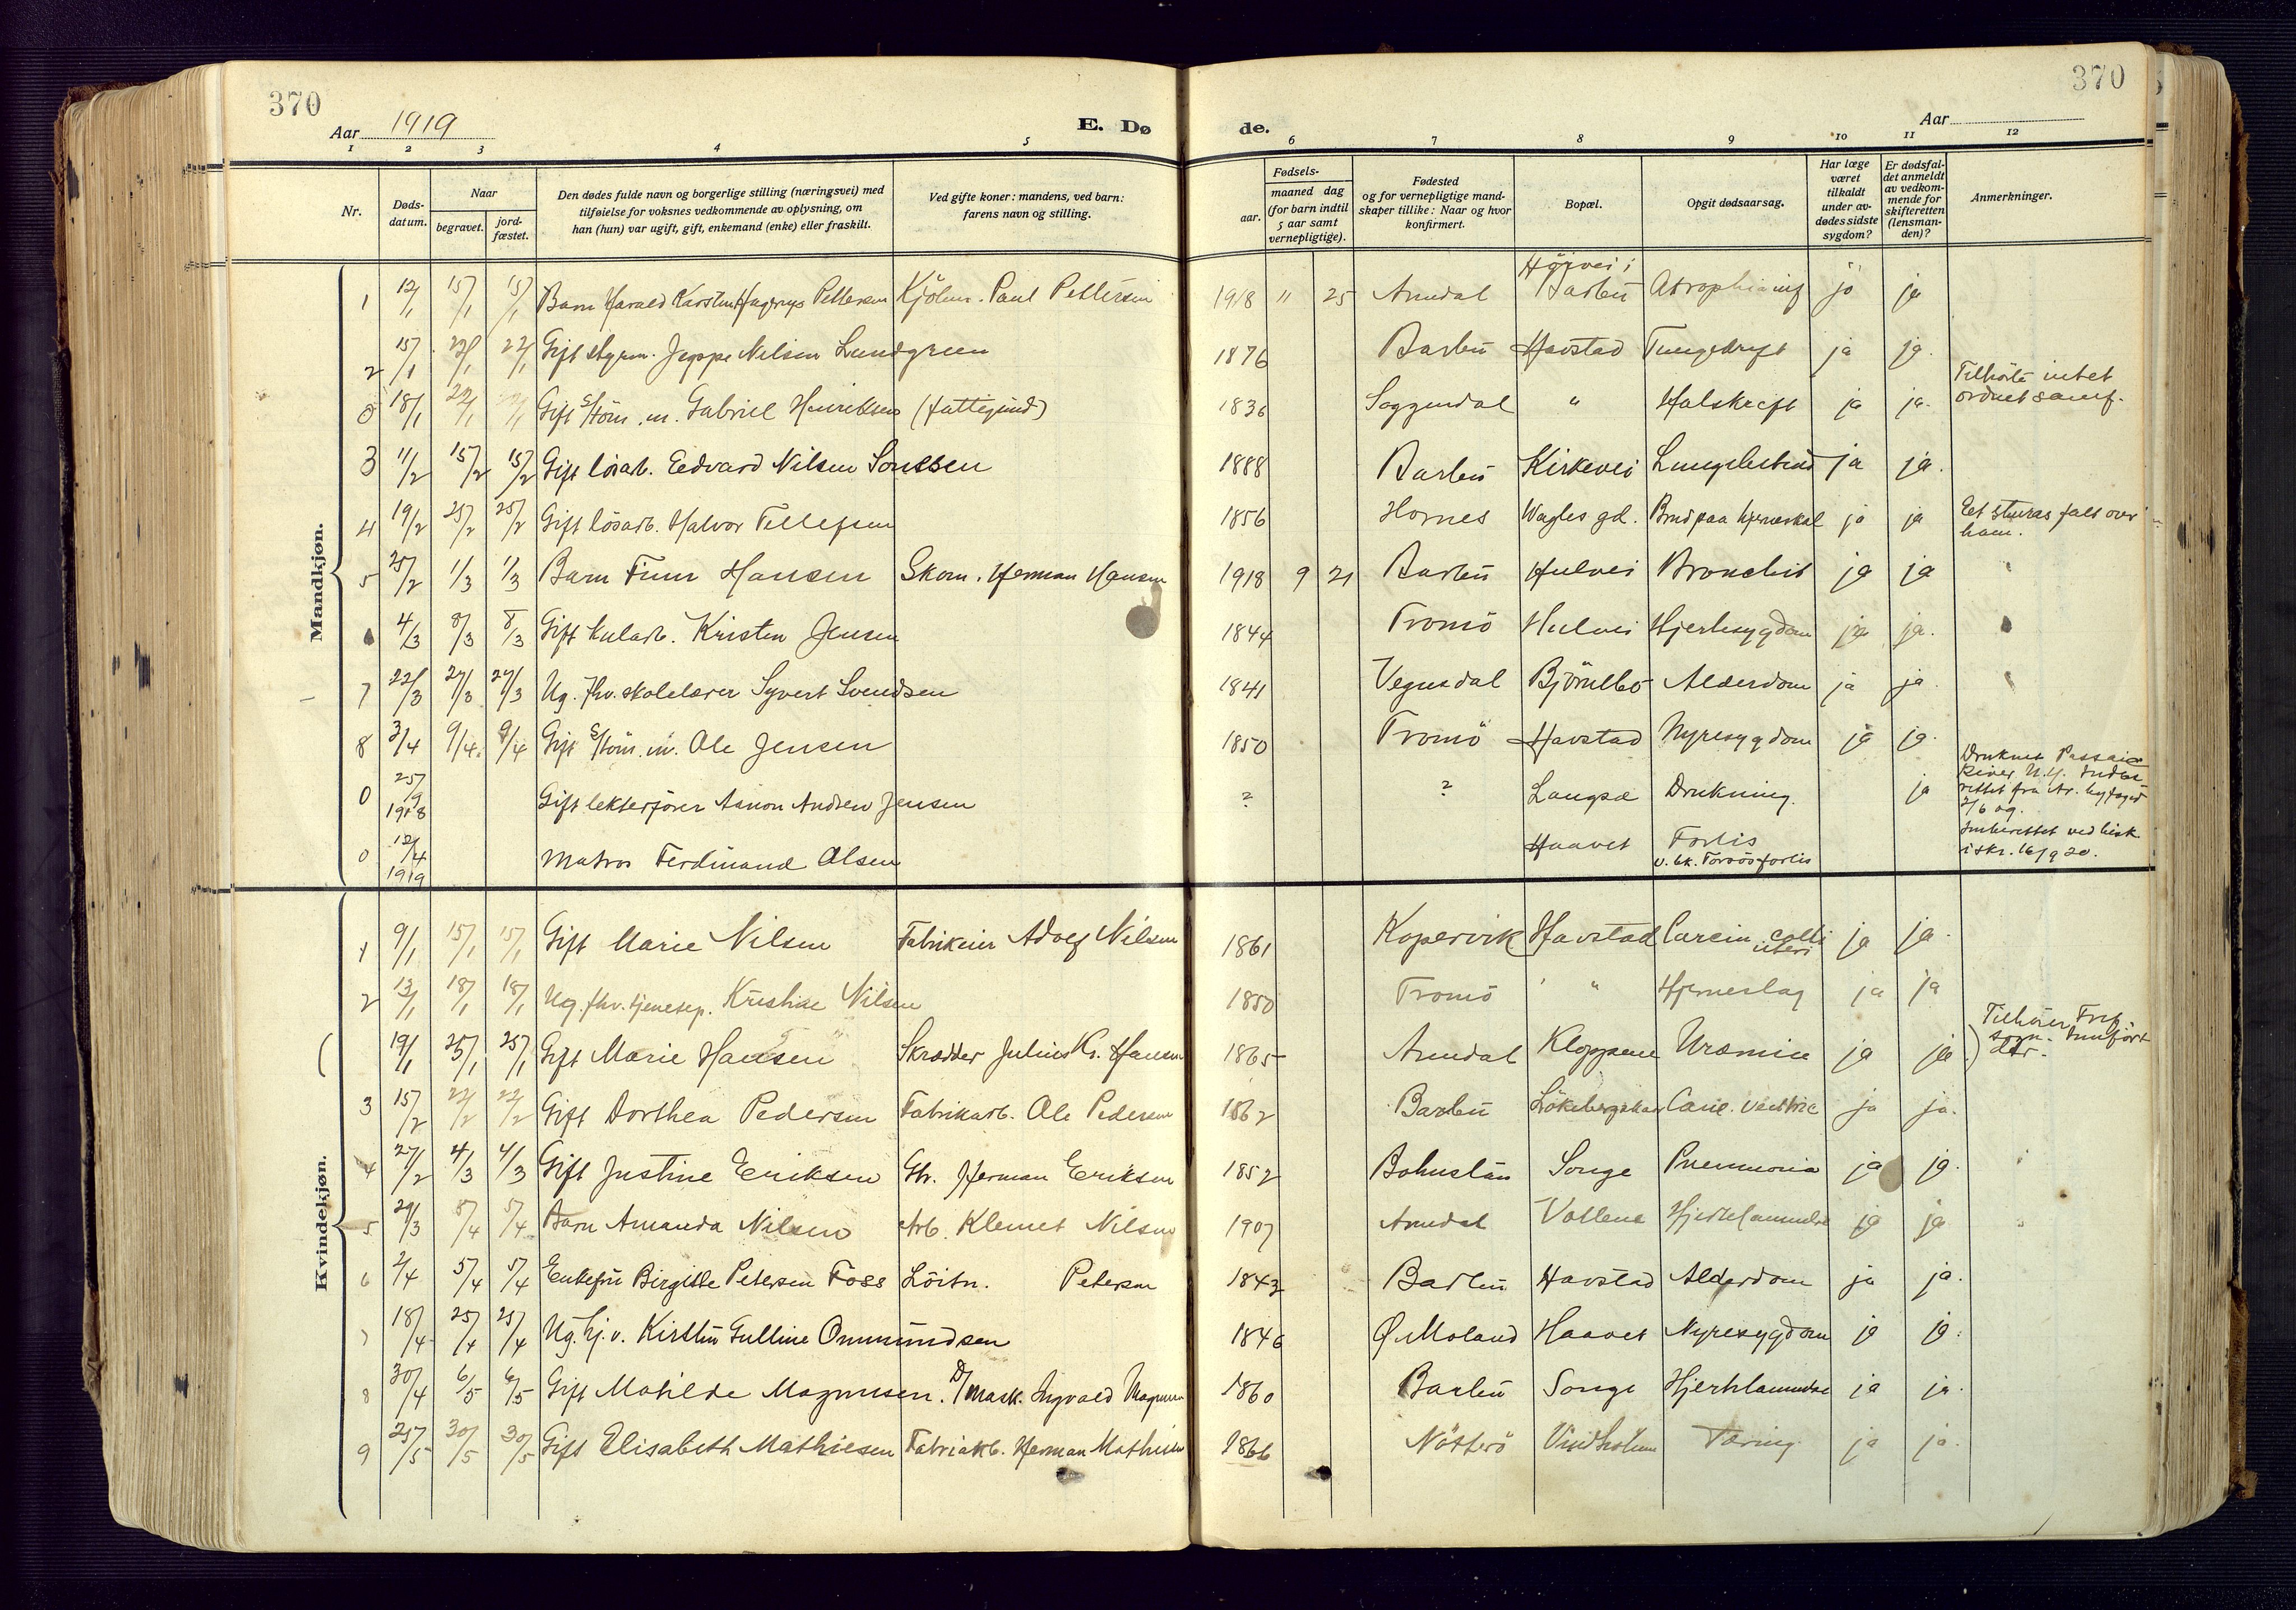 370
370
Aar 1919
E. Dø
de.
Aar
1 2 3 4 5 6 7 8 9 10 11 12
Nr.
Døds-
datum.
Naar
begravet.
jord-
fæstet.
Den dødes fulde navn og borgerlige stilling (næringsvei) med
tilføielse for voksnes vedkommende av oplysning, om
han (hun) var ugift, gift, enkemand (enke) eller fraskilt.
Ved gifte koner: mandens, ved barn:
farens navn og stilling.
Fødsels-
aar.
maaned dag
(for barn indtil
5 aar samt
vernepligtige).
Fødested
og for vernepligtige mand-
skaper tillike: Naar og hvor
konfirmert.
Bopæl.
Opgit dødsaarsag.
Har læge
været
tilkaldt
under av-
dødes sidste
sygdom?
Er dødsfal-
det anmeldt
av vedkom-
mende for
skifteretten
(lensman-
den)?
Anmerkninger.
Mandkjøn.
1 12/1 15/1 15/1 Barn Harald Karsten Pettersen Kjölm. Paul Pettersen 1918 " 25 Arendal Barbu ja ja
2 15/1 22/1 22/1 Gift styrm. Jeppe Nilsen Lundgreen 1876 Barbu Havstad ja ja.
0 18/1 22/1 Gift Gabriel Henriksen 1836 Soggendal " Halskræft ja ja. Tilhörte intet
ordnet samf.
3 11/2 15/2 15/2 Gift lösarb. Edvard Nilsen 1888 Barbu Kirkevei ja ja.
4 19/2 25/2 25/2 Gift lösarb. Halvor Tellefsen 1856 Hornes Brud paa hjerneskal ja ja falt over
ham.
5 25/2 1/3 1/3 Barn Finn Hansen Skom. Herman Hansen 1918 9 21 Barbu Hulvei Bronchit ja ja
4/3 8/3 8/3 Gift kularb. Kristen Jensen 1844 Tromö Hulvei Hjertesygdom ja ja.
7 22/3 27/3 27/3 Ug. fhv. skolelærer Syvert Svendsen 1841 Vegusdal Alderdom ja ja.
8 3/4 9/4 9/4 Gift Ole Jensen 1850 Tromö Havstad Nyresygdom ja ja.
0 25/9 1918 Gift lekterförer Andrew Jensen ? ? Langsæ Drukning ja Druknet Passaic
River N.Y.
0 12/4 1919 Matros Ferdinand Olsen Haavet Forlis
16/9 20.
Kvindekjøn.
1 9/1 15/1 15/1 Gift Marie Nilsen Fabrikeier Adolf Nilsen 1861 Kopervik Havstad Carcin. colli
uteri ja ja.
2 13/1 18/1 18/1 Ug. fhv. tjenestep. Kristine Nilsen 1850 Tromö " Hjerneslag ja ja
19/1 25/1 25/1 Gift Marie Hansen Skrædder Julius Kr. Hansen 1865 Arendal Kloppene Uræmie ja ja Tilhörer
sogn.
3 15/2 22/2 22/2 Gift Dorthea Pedersen Fabrikarb. Ole Pedersen 1862 Barbu ja ja.
4 27/2 4/3 4/3 Gift Justine Eriksen Gbr. Herman Eriksen 1852 Bohuslän Songe Pneumonia ja ja.
5 29/3 5/4 5/4 Barn Amanda Nilsen Arb. Klemet Nilsen 1907 Arendal Vollene Hjertelammelse ja ja
6 2/4 5/4 5/4 Enkefru Birgitte Petersen Foss Löitn. Petersen 1843 Barbu Havstad Alderdom ja ja.
7 18/4 25/4 25/4 Ug. hj. v. Kirsten Gulline Ommundsen 1846 Ø. Moland Haavet Nyresygdom ja ja.
8 30/4 6/5 6/5 Gift Matilde Magnusen. D/mask. Ingvald Magnusen 1860 Barbu Songe Hjertelammelse ja ja.
9 25/5 30/5 30/5 Gift Elisabeth Mathiesen Fabrikarb. Herman Mathiesen 1866 Nötterö Vindholmen Tæring. ja ja.